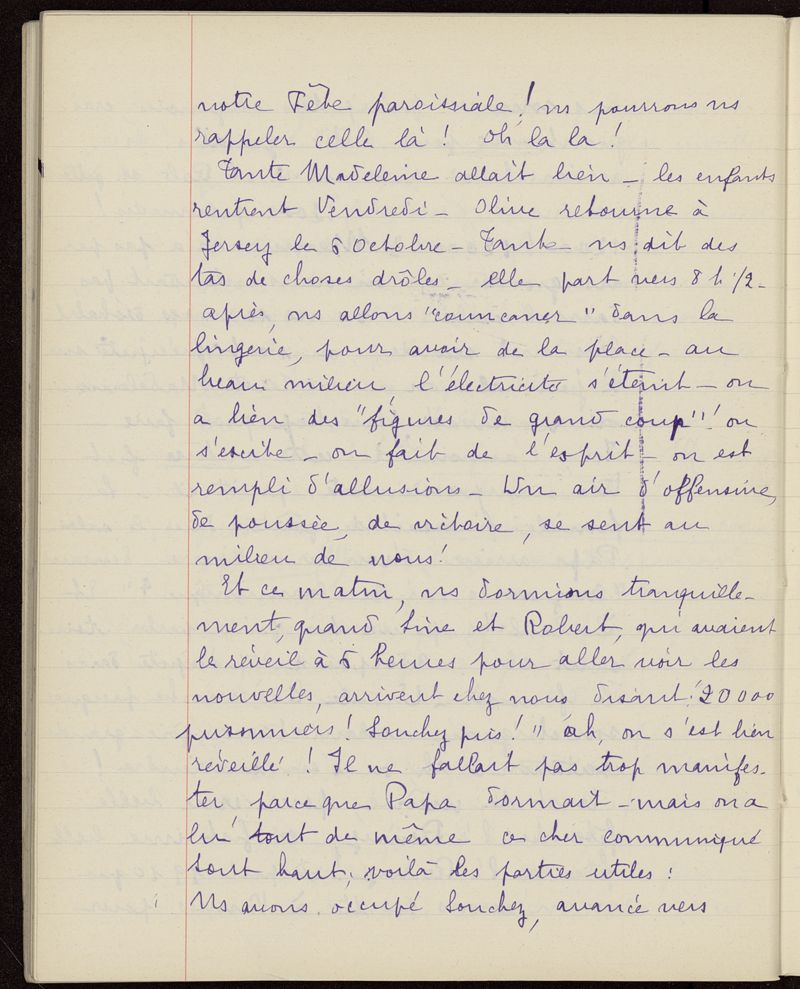 notre Fête paroissiale! ns pourrons ns
rappeler celle là! Oh la la!
Tante Madeleine allait bien - les enfants
rentrent Vendredi - Olive retourne à
Jersey le 5 Octobre - Tante ns dit des
tas de choses drôles - elle part vers 8 h 1/2 -
après, ns allons "cancaner" dans la
lingerie, pour avoir de la place - au
beau milieu, l'électricité s'éteint - on
a bien des "figures de grand coup"! on
s'excite - on fait de l'esprit - on est
rempli d'allusions - Un air d'offensive,
de poussée, de victoire, se sent au
milieu de nous!
Et ce matin, ns dormions tranquille-
ment, quand Line et Robert, qui avaient
le réveil à 5 heures pour aller voir les
nouvelles, arrivent chez nous disant: "20000
prisonniers! Souchez pris!" ah, on s'est bien
réveillé! Il ne fallait pas trop manifes-
ter parce que Papa dormait - mais on a
lu tout de même ce cher communiqué
tout haut; voilà les parties utiles:
Ns avons occupé Souchez, avancé vers